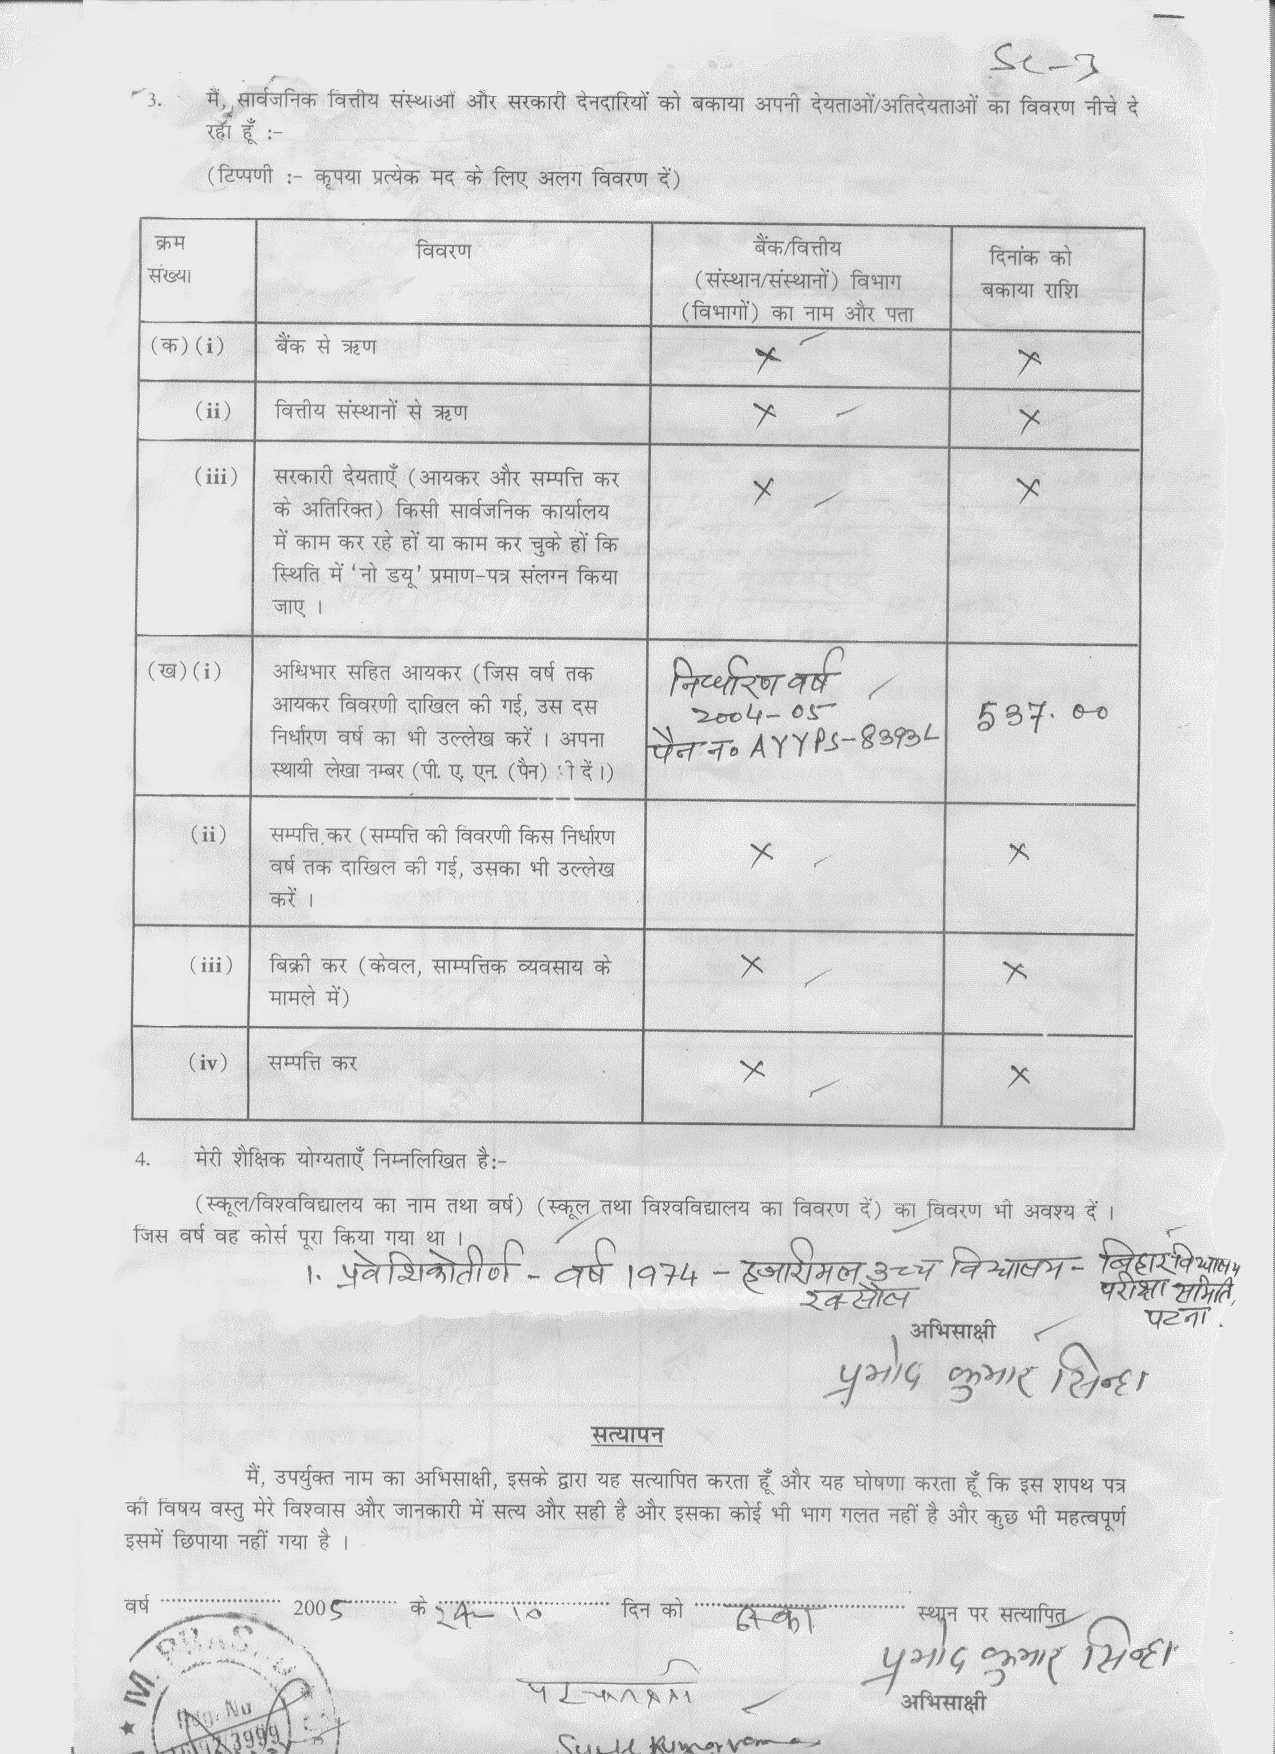 SC-3
3. मैं, सार्वजनिक वित्तीय संस्थाओं और सरकारी देनदारियों को बकाया अपनी देयताओं/अतिदेयताओं का विवरण नीचे दे
रहा हूँ :-
(टिप्पणी :- कृपया प्रत्येक मद के लिए अलग विवरण दें)
क्रम
संख्या
विवरण
बैंक/वित्तीय
(संस्थान/संस्थानों) विभाग
(विभागों) का नाम और पता
दिनांक को
बकाया राशि
(क) (i) बैंक से ऋण × ×
(ii) वित्तीय संस्थानों से ऋण × ×
(iii) सरकारी देयताएँ (आयकर और सम्पत्ति कर × ×
के अतिरिक्त) किसी सार्वजनिक कार्यालय
में काम कर रहे हों या काम कर चुके हों कि
स्थिति में 'नो डयू' प्रमाण-पत्र संलग्न किया
जाए ।
(ख) (i) अधिभार सहित आयकर (जिस वर्ष तक
आयकर विवरणी दाखिल की गई, उस दस
निर्धारण वर्ष का भी उल्लेख करें । अपना
स्थायी लेखा नम्बर (पी. ए. एन. (पैन) भी दें।)
निर्धारण वर्ष
2004-05
पैन न०
537.00
(ii) सम्पत्ति कर (सम्पत्ति की विवरणी किस निर्धारण × ×
वर्ष तक दाखिल की गई, उसका भी उल्लेख
करें ।
(iii) बिक्री कर (केवल, साम्पत्तिक व्यवसाय के × ×
मामले में)
(iv) सम्पत्ति कर × ×
4. मेरी शैक्षिक योग्यताएँ निम्नलिखित है:-
(स्कूल/विश्वविद्यालय का नाम तथा वर्ष) (स्कूल तथा विश्वविद्यालय का विवरण दें) का विवरण भी अवश्य दें ।
जिस वर्ष वह कोर्स पूरा किया गया था ।
1. प्रवेशिकोतीर्ण - वर्ष 1974 - हजारीमल उच्च विद्यालय - बिहार विद्यालय
रक्सौल परीक्षा समिति,
पटना.
अभिसाक्षी
प्रमोद कुमार सिन्हा
सत्यापन
मैं, उपर्युक्त नाम का अभिसाक्षी, इसके द्वारा यह सत्यापित करता हूँ और यह घोषणा करता हूँ कि इस शपथ पत्र
की विषय वस्तु मेरे विश्वास और जानकारी में सत्य और सही है और इसका कोई भी भाग गलत नहीं है और कुछ भी महत्वपूर्ण
इसमें छिपाया नहीं गया है ।
वर्ष 2005 के 24-10 दिन को स्थान पर सत्यापित
प्रमोद कुमार सिन्हा
अभिसाक्षी